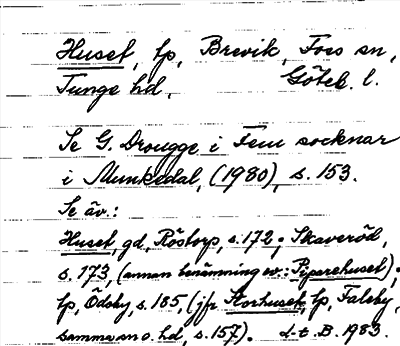 Huset, lp, Brevik, Foss sn,
Tunge hd, Göteb. l.
Se G. Drougge i Fem socknar
i Munkedal, (1980), s. 153.
Se äv.:
Huset, gd, Röstorp, s. 172; Skaveröd,
s. 173, (annan benämning ev.: Piparehuset);
lp, Ödsby, s. 185, (jfr Storhuset, lp, Faleby,
samma sn o. hd, s. 157). L-t. B. 1983.